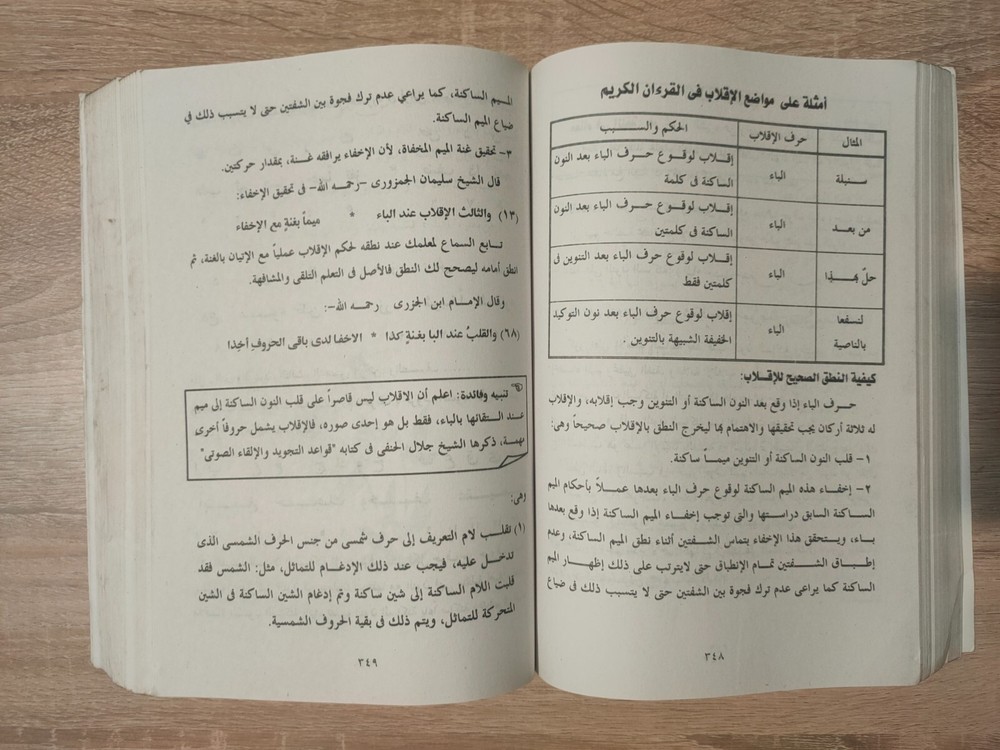 أمثلة على مواضع الإقلاب فى القرءان الكريم
المثال حرف الإقلاب الحكم والســـبب
سنبلة الباء إقلاب لوقوع حرف الباء بعد النون
الساكنة فى كلمة
من بعد الباء إقلاب لوقوع حرف الباء بعد النون
الساكنة فى كلمتين
حلّ بهـذا الباء إقلاب لوقوع حرف الباء بعد التنوين فى
كلمتين فقط
لنسفعا بالناصية الباء إقلاب لوقوع حرف الباء بعد نون التوكيد
الخفيفة الشبيهة بالتنوين .
كيفية النطق الصحيح للإقـلاب:
حرف الباء إذا وقع بعد النون الساكنة أو التنوين وجب إقلابه، والإقلاب
له ثلاثة أركان يجب تحقيقها والاهتمام بها ليخرج النطق بالإقلاب صحيحاً وهى:
١- قلب النون الساكنة أو التنوين ميمـاً ساكنة.
٢- إخفـاء هذه الميم الساكنة لوقوع حرف الباء بعدها عمـلاً بأحكام الميم
الساكنة السابق دراسـتها والتى توجب إخفـاء الميم الساكنة إذا وقع بعدها
بـاء، ويتحقق هذا الإخفاء بتماس الشفتين أثناء نطق الميم الساكنة، وعدم
إطـباق الشــفتين تمـام الإنطباق حتى لايترتب على ذلك إظهـار الميم
الساكنة كما يراعى عدم ترك فجوة بين الشفتين حتى لا يتسبب ذلك فى ضياع
٣٤٨
الميم الساكنة، كما يراعي عدم ترك فجوة بين الشفتين حتى لا يتسبب ذلك في
ضياع الميم الساكنة.
٣- تحقيق غنة الميم المخفاة، لأن الإخفاء يرافقه غـنة، بمقدار حركتين.
قال الشيخ سليمان الجمزورى -رحمـه الله- فى تحقيق الإخفاء:
(١٣) والثالث الإقلاب عند الباء * ميماً بغنةٍ مع الإخفاء
تـابع السماع لمعلمك عند نطقه لحكم الإقلاب عملياً مع الإتيان بالغنة، ثم
انطق أمامه ليصحح لك النطق فالأصل فى التعلم التلقى والمشافهة.
وقال الإمـام ابن الجزرى رحمـه الله-:
(٦٨) والقلبُ عند البا بغنةٍ كذا * الاخفا لدى باقى الحروفِ أخِذا
تنبيه وفائدة: اعلم أن الاقلاب ليس قاصراً على قلب النون الساكنة إلى ميم
عـند الـتقائها بالباء، فقط بل هو إحدى صوره، فالإقلاب يشمل حروفاً أخرى
مهمـة، ذكرها الشيخ جلال الحنفى فى كتابه "قواعد التجويد والإلقاء الصوتى"
وهى:
(١) تقلـب لام التعريف إلى حرف شمسى من جنس الحرف الشمسى الذى
تدخـل عليه، فيجب عند ذلك الإدغام للتماثل، مثل: الشمس فقد
قلبت اللام الساكنة إلى شين ساكنة وتم إدغام الشين الساكنة فى الشين
المتحركة للتماثل، ويتم ذلك فى بقية الحروف الشمسية.
٣٤٩